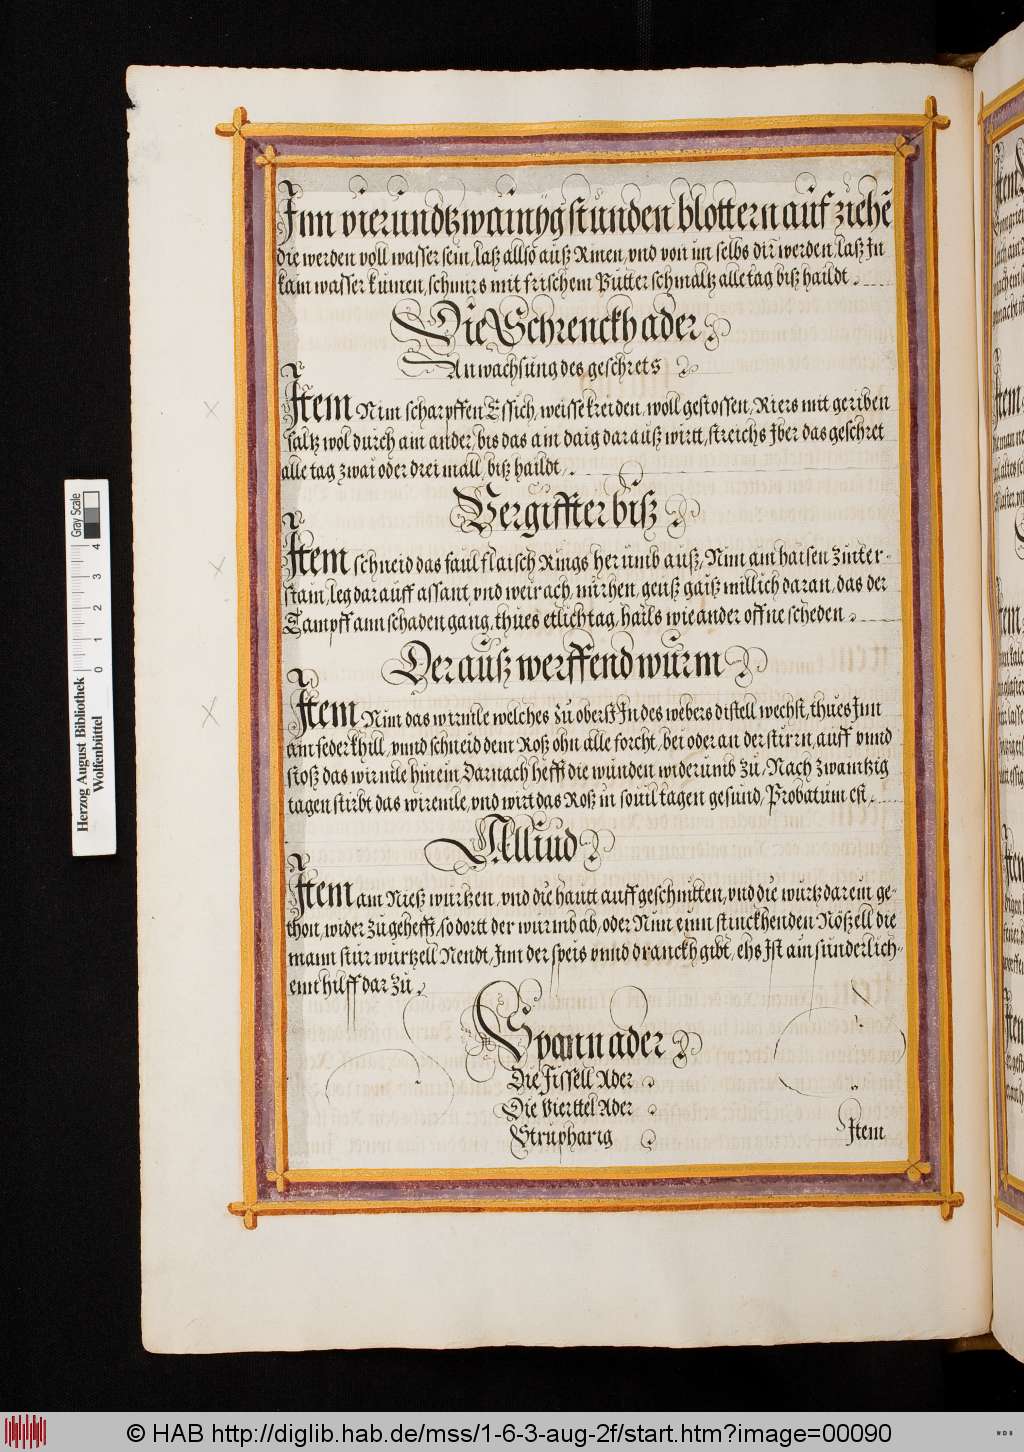 Inn vierundtzwainyg stunden blottern auf ziehẽ
die werden voll wasser sein, laß allso auß Rinen, vnd von im selbs dir werden, laß In
kain wasser kumen, schmirs mit frischem Putter schmaltz alle tag biß haildt.
Die Schrenckhader
Anwachsung des geschrets
Item Nim scharpffen Essich, weisse kreiden, woll gestossen, Riers mit geriben
saltz wol durch ain ander, bis das ain daig darauß wirtt, streichs Iber das geschret
alle tag zwai oder drei mall, biß haildt,
Vergiffter biß
Item schneid das faul flaisch Rings herumb auß, Nim ain haisen Zinter-
stain, leg darauff assant, vnd weirach, mirhen, geuß gaiß millich daran, das der
Tampff ann schaden gang, thues etlich tag, hails wie ander offne scheden
Der außwerffend wurm
Item Nim das wirmle welches zu oberst In des webers distell wechst, thues Inn
ain federkhill, vnnd schneid dem Roß ohn alle forcht, bei oder an der stirrn, auff vnnd
stoß das wirmle hinein Darnach hefft die wunden widerumb zu, Nach zwaintzig
tagen stirbt das wiremle, vnd wirt das Roß in souil tagen gesund, Probatum est.
Alliud
Item ain Nieß wurtzen, vnd die hautt auff geschnitten, vnd die wurtz darein ge-
thon, wider zu gehefft, so dortt der wurmb ab, oder Nim einn stinckhenden Nößell die
mann stur wurtzell Nendt, Inn der speis vnnd dranckh gibt, ehs Ist ain sunderlich-
emt hilff dar zu
Spannader
Die Fissell Ader
Die Vierttel Ader
Strupharig
Item
Herzog August Bibliothek
Wolfenbüttel
0 1 2 3 4
Gray Scale
© HAB http://diglib.hab.de/mss/1-6-3-aug-2f/start.htm?image=00090